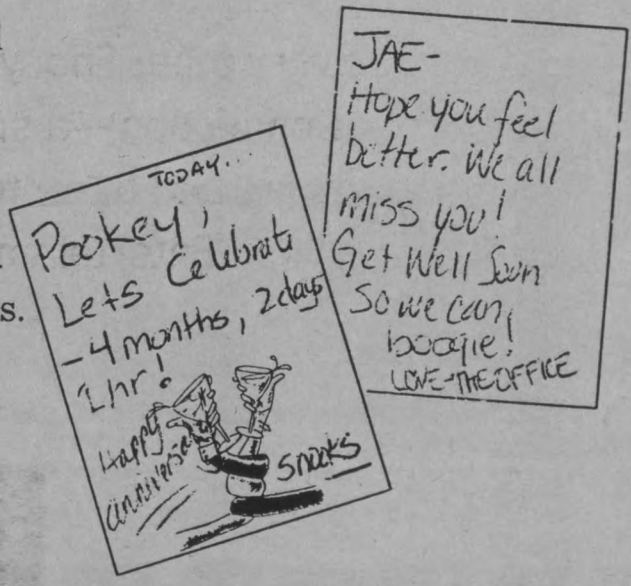 TODAY...
Pookey,
Lets Celebrate
-4 months, 2 days
1 hr!
Happy
anniversary
snooks
JAE-
Hope you feel
better. We all
miss you!
Get Well Soon
So we can
boogie!
LOVE-THE OFFICE
s.